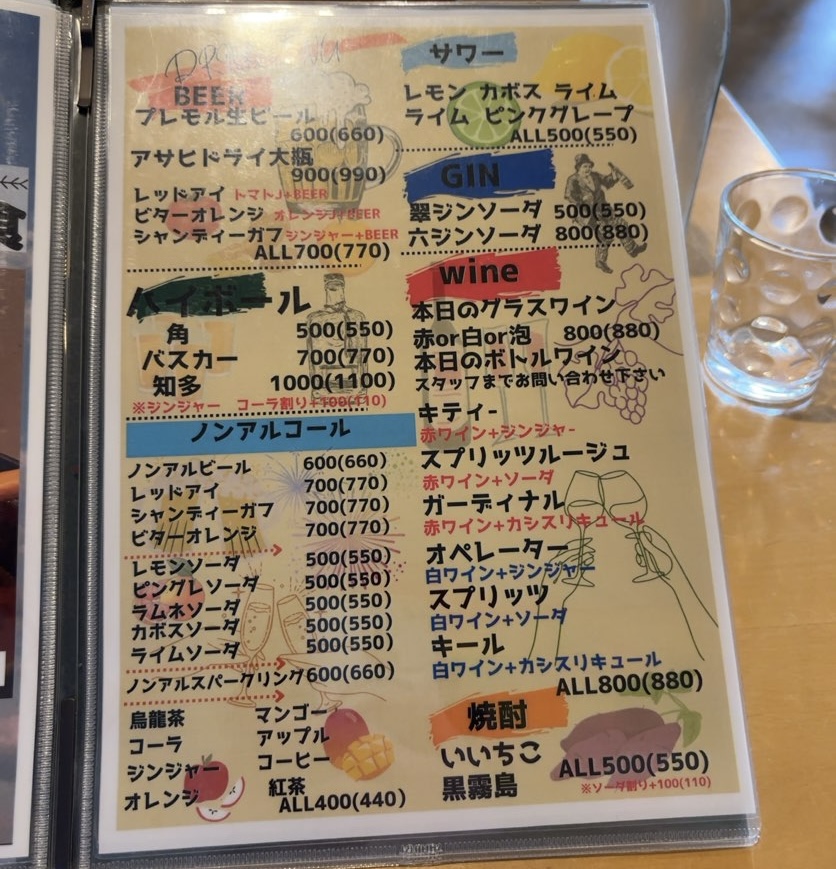 BEER
プレモル生ビール
600(660)
アサヒドライ大瓶
900(990)
レッドアイ トマトJ+BEER
ビターオレンジ オレンジJ+BEER
シャンディーガフ ジンジャー+BEER
ALL700(770)
ハイボール
角 500(550)
バスカー 700(770)
知多 1000(1100)
※ジンジャー コーラ割り+100(110)
ノンアルコール
ノンアルビール 600(660)
レッドアイ 700(770)
シャンディーガフ 700(770)
ビターオレンジ 700(770)
レモンソーダ 500(550)
ピングレソーダ 500(550)
ラムネソーダ 500(550)
カボスソーダ 500(550)
ライムソーダ 500(550)
ノンアルスパークリング600(660)
烏龍茶 マンゴー
コーラ アップル
ジンジャー コーヒー
オレンジ 紅茶
ALL400(440)
サワー
レモン カボス ライム
ライム ピンクグレープ
ALL500(550)
GIN
翠ジンソーダ 500(550)
六ジンソーダ 800(880)
wine
本日のグラスワイン
赤or白or泡 800(880)
本日のボトルワイン
スタッフまでお問い合わせ下さい
キティ-
赤ワイン+ジンジャ-
スプリッツルージュ
赤ワイン+ソーダ
ガーディナル
赤ワイン+カシスリキュール
オペレーター
白ワイン+ジンジャー
スプリッツ
白ワイン+ソーダ
キール
白ワイン+カシスリキュール
ALL800(880)
焼酎
いいちこ
黒霧島
ALL500(550)
※ソーダ割り+100(110)